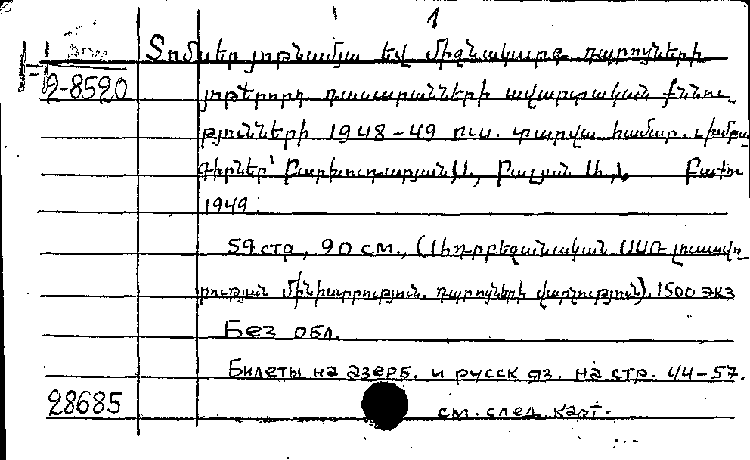 1
2-8520
Տոմսեր յոթնամյա եվ միջնակարգ դպրոցների
յոթերորդ դասարանների ավարտական քննու-
թյունների 1948-49 ուս. տարվա համար. Խմբա-
գիրներ՝ Բարխուդարյան Ա., Բալյան Ա., Բաքու
1949.
59 стр, 90 см., (Ադրբեջանական ՍՍՌ լուսավո-
րության մինիստրություն. դպրոցների վարչություն). 1500 экз
Без обл.
Билеты на азерб. и русск яз. на стр. 44-57.
28685
см. след. карт.